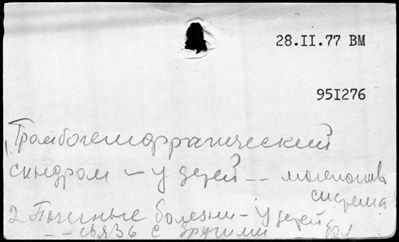 28.II.77 ВМ
951276
1. Тромбогеморрагический
синдром – у детей --
система
2 Почечные болезни – у детей
-- связь с другими бол